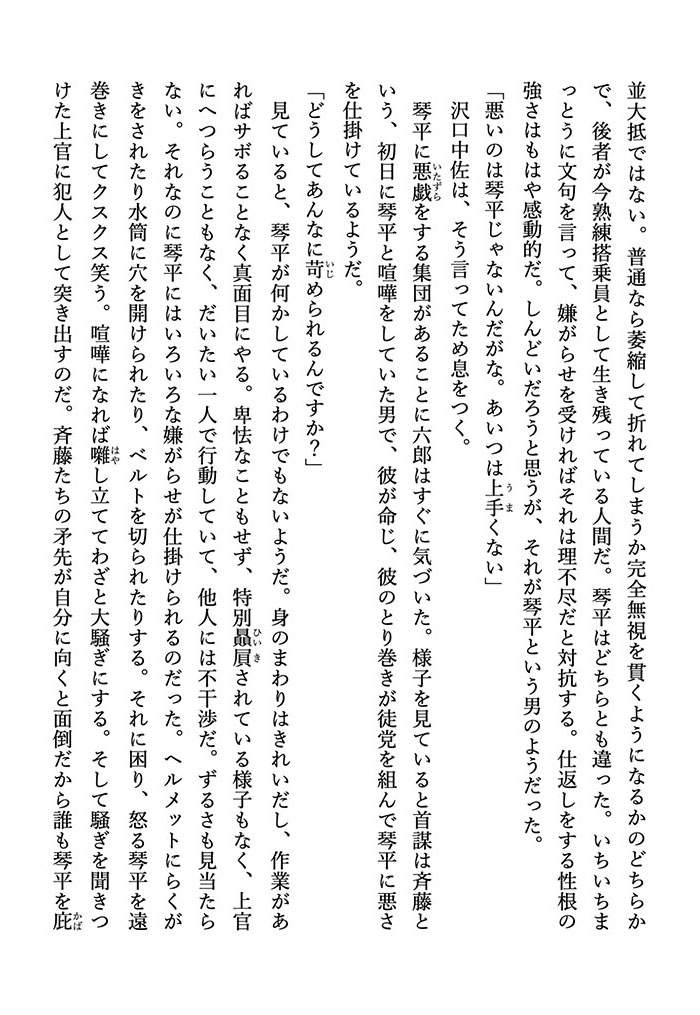 並大抵ではない。普通なら萎縮して折れてしまうか完全無視を貫くようになるかのどちらか
で、後者が今熟練搭乗員として生き残っている人間だ。琴平はどちらとも違った。いちいちま
っとうに文句を言って、嫌がらせを受ければそれは理不尽だと対抗する。仕返しをする性根の
強さはもはや感動的だ。しんどいだろうと思うが、それが琴平という男のようだった。
「悪いのは琴平じゃないんだがな。あいつは上手くない」
沢口中佐は、そう言ってため息をつく。
琴平に悪戯をする集団があることに六郎はすぐに気づいた。様子を見ていると首謀は斉藤と
いう、初日に琴平と喧嘩をしていた男で、彼が命じ、彼のとり巻きが徒党を組んで琴平に悪さ
を仕掛けているようだ。
「どうしてあんなに苛められるんですか？」
見ていると、琴平が何かしているわけでもないようだ。身のまわりはきれいだし、作業があ
ればサボることなく真面目にやる。卑怯なこともせず、特別贔屓されている様子もなく、上官
にへつらうこともなく、だいたい一人で行動していて、他人には不干渉だ。ずるさも見当たら
ない。それなのに琴平にはいろいろな嫌がらせが仕掛けられるのだった。ヘルメットにらくが
きをされたり水筒に穴を開けられたり、ベルトを切られたりする。それに困り、怒る琴平を遠
巻きにしてクスクス笑う。喧嘩になれば囃し立ててわざと大騒ぎにする。そして騒ぎを聞きつ
けた上官に犯人として突き出すのだ。斉藤たちの矛先が自分に向くと面倒だから誰も琴平を庇